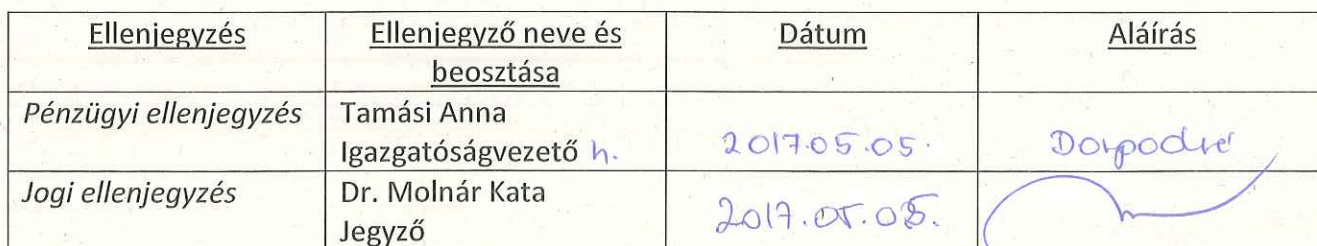 Ellenjegyzés Ellenjegyző neve és beosztása Dátum Aláírás
Pénzügyi ellenjegyzés Tamási Anna
Igazgatóságvezető h. 2017.05.05.
Jogi ellenjegyzés Dr. Molnár Kata
Jegyző